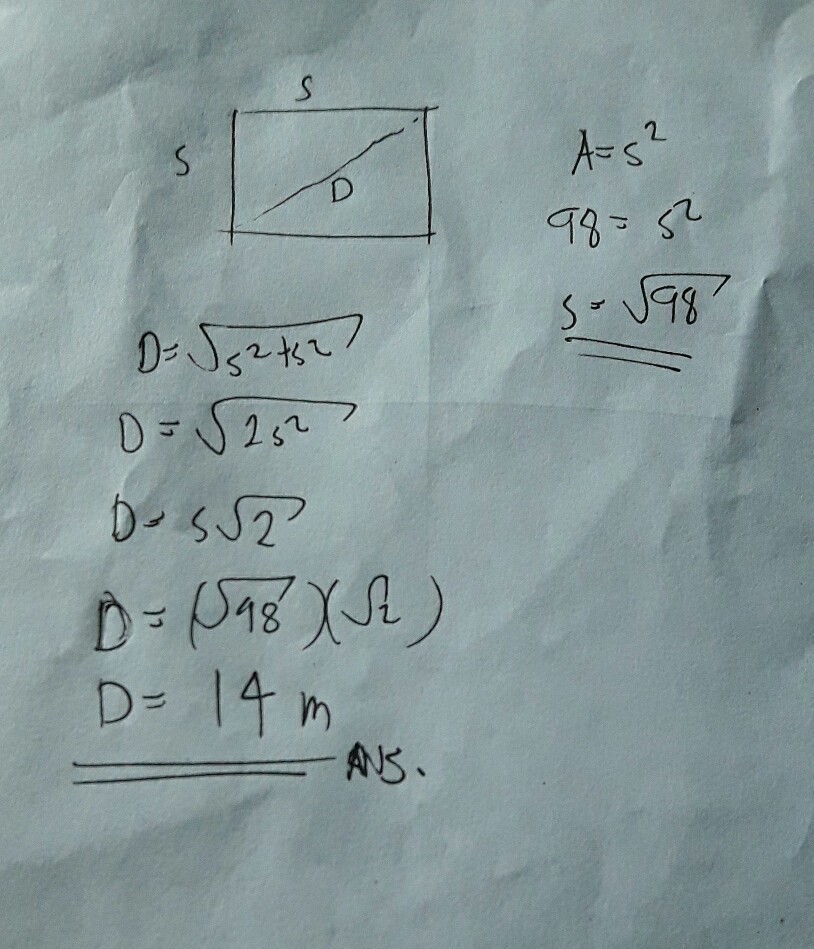 S
S
D
A=s²
98=s²
s=√98
D=√s²+s²
D=√2s²
D=s√2
D=(√98)(√2)
D=14 m
ANS.